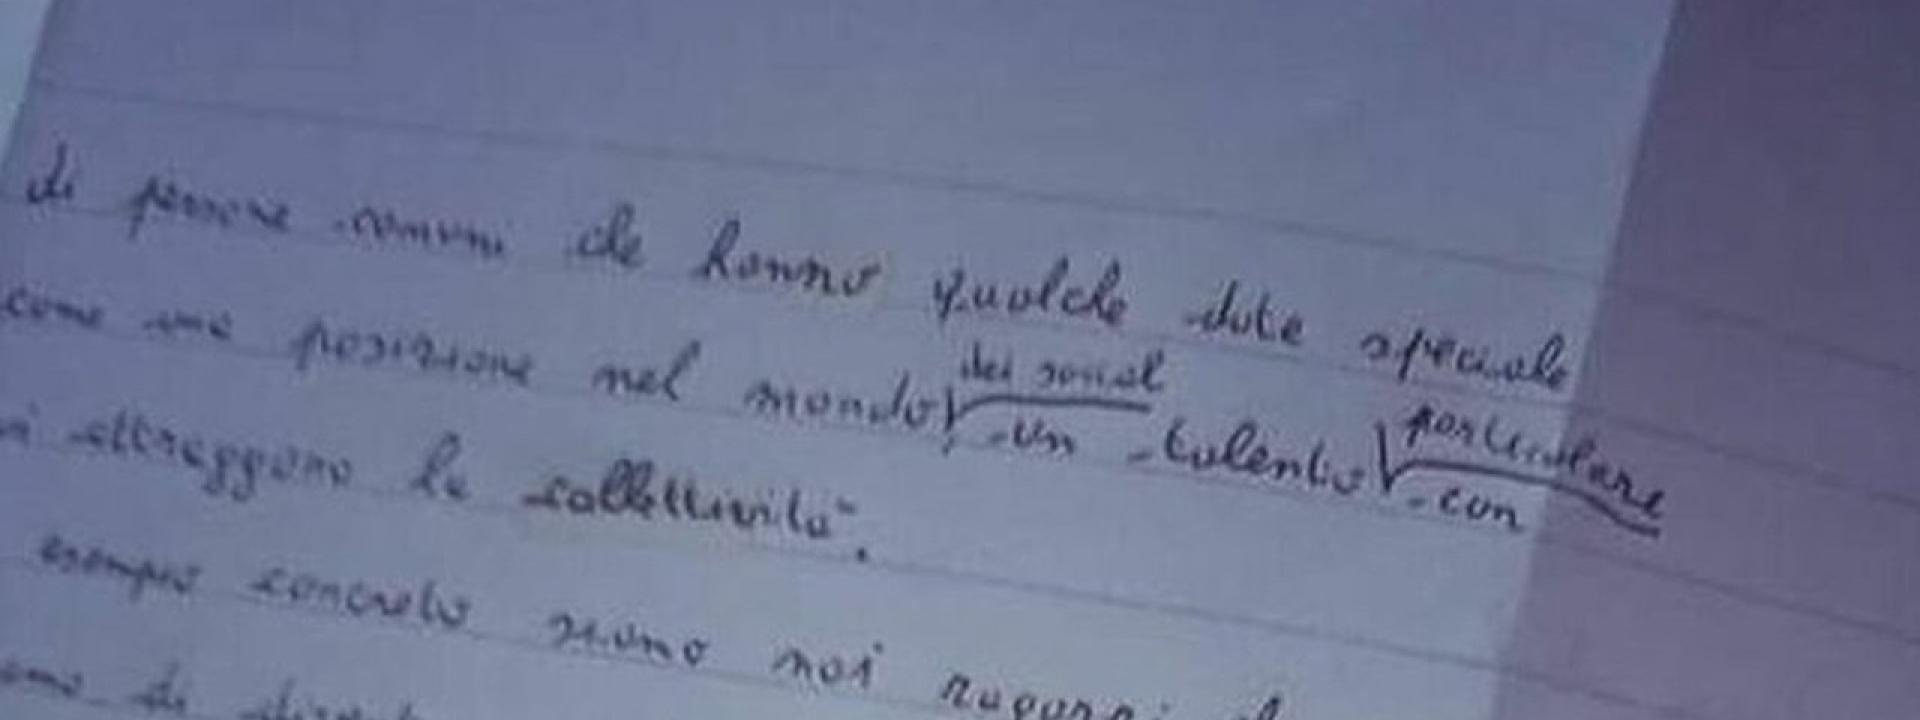 di persone comuni che hanno qualche dote speciale
dei social particolare
come una posizione nel mondo, un talento con
attraggono la collettività".
esempio concreto siamo noi ragazzi
di